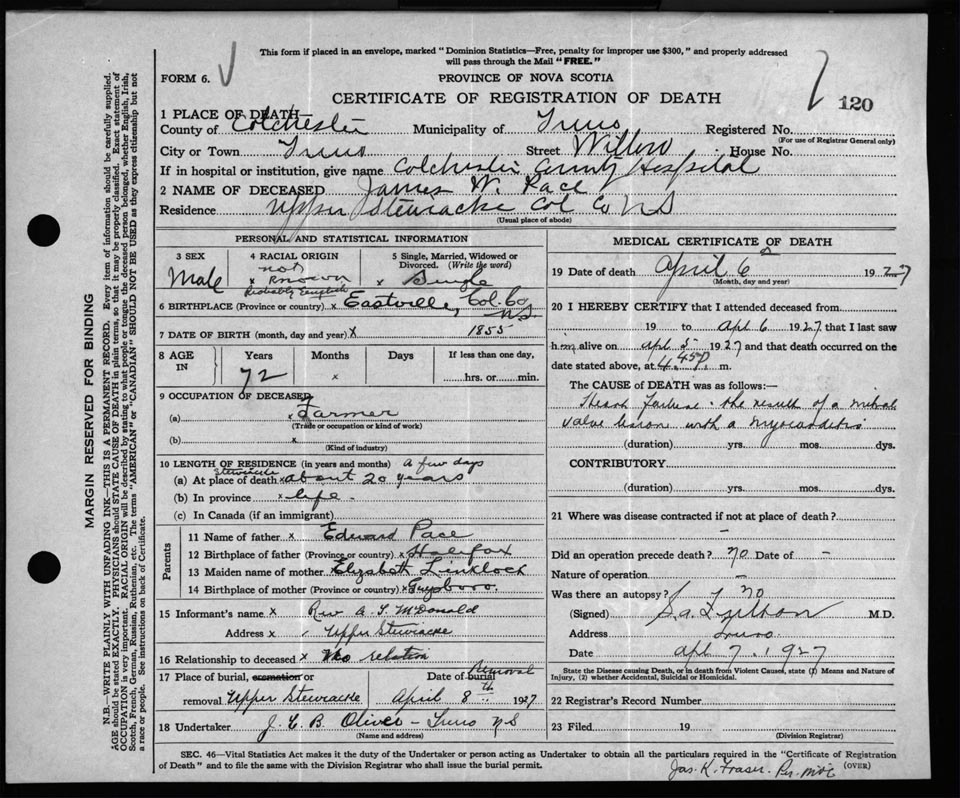 This form if placed in an envelope, marked "Dominion Statistics—Free, penalty for improper use $300," and properly addressed
will pass through the Mail "FREE."
FORM 6.
PROVINCE OF NOVA SCOTIA
CERTIFICATE OF REGISTRATION OF DEATH
120
1 PLACE OF DEATH—
County of Colchester Municipality of Truro Registered No.
(For use of Registrar General only)
City or Town Truro Street Willow House No.
If in hospital or institution, give name Colchester County Hospital
2 NAME OF DECEASED James W. Pace
Residence Upper Stewiacke Col Co NS
(Usual place of abode)
PERSONAL AND STATISTICAL INFORMATION
3 SEX
Male
4 RACIAL ORIGIN
x not
known
Probably English
5 Single, Married, Widowed or
Divorced. (Write the word)
x Single
6 BIRTHPLACE (Province or country) x Eastville, Col. Co
N.S.
7 DATE OF BIRTH (month, day and year) x 1855
8 AGE
IN
Years Months Days If less than one day,
72 x hrs. or min.
9 OCCUPATION OF DECEASED
(a) x Farmer
(Trade or occupation or kind of work)
(b) x
(Kind of industry)
10 LENGTH OF RESIDENCE (in years and months) a few days
Stewiacke
(a) At place of death x about 20 years
(b) In province x life -
(c) In Canada (if an immigrant)
Parents
11 Name of father x Edward Pace
12 Birthplace of father (Province or country) x Halifax
13 Maiden name of mother x Elizabeth
14 Birthplace of mother (Province or country) x Guysboro
15 Informant's name x Rev A. McDonald
Address x Upper Stewiacke
16 Relationship to deceased x No relation
17 Place of burial, cremation or
removal Upper Stewiacke
Removal
Date of burial
April 8th 1927
18 Undertaker J. C. B. Oliver - Truro NS
(Name and address)
MEDICAL CERTIFICATE OF DEATH
19 Date of death April 6 1927
(Month, day and year)
20 I HEREBY CERTIFY that I attended deceased from
19 to Apl 6 1927 that I last saw
him alive on Apl 5 1927 and that death occurred on the
date stated above, at 4.45P m.
The CAUSE OF DEATH was as follows:
Heart Failure - the result of a mitral
valve lesion with a myocarditis
(duration) yrs. mos. dys.
CONTRIBUTORY
(duration) yrs. mos. dys.
21 Where was disease contracted if not at place of death?
-
Did an operation precede death? no Date of -
Nature of operation -
Was there an autopsy? no
(Signed) M.D.
Address Truro
Date Apl 7. 1927
State the Disease causing Death, or in death from Violent Causes, state (1) Means and Nature of
Injury, (2) whether Accidental, Suicidal or Homicidal.
22 Registrar's Record Number
23 Filed 19
(Division Registrar)
SEC. 46—Vital Statistics Act makes it the duty of the Undertaker or person acting as Undertaker to obtain all the particulars required in the "Certificate of Registration
of Death" and to file the same with the Division Registrar who shall issue the burial permit.
(OVER)
Jas. K. Fraser.
MARGIN RESERVED FOR BINDING
N.B.—WRITE PLAINLY WITH UNFADING INK—THIS IS A PERMANENT RECORD. Every item of information should be carefully supplied.
AGE should be stated EXACTLY. PHYSICIANS should STATE CAUSE OF DEATH in plain terms, so that it may be properly classified. Exact statement of
OCCUPATION is very important. RACIAL ORIGIN will be described by stating to what people or tongue the deceased person belonged, whether English, Irish,
Scotch, French, German, Russian, Ruthenian, etc. The terms "AMERICAN" or "CANADIAN" SHOULD NOT BE USED as they express citizenship but not
a race or people. See instructions on back of Certificate.